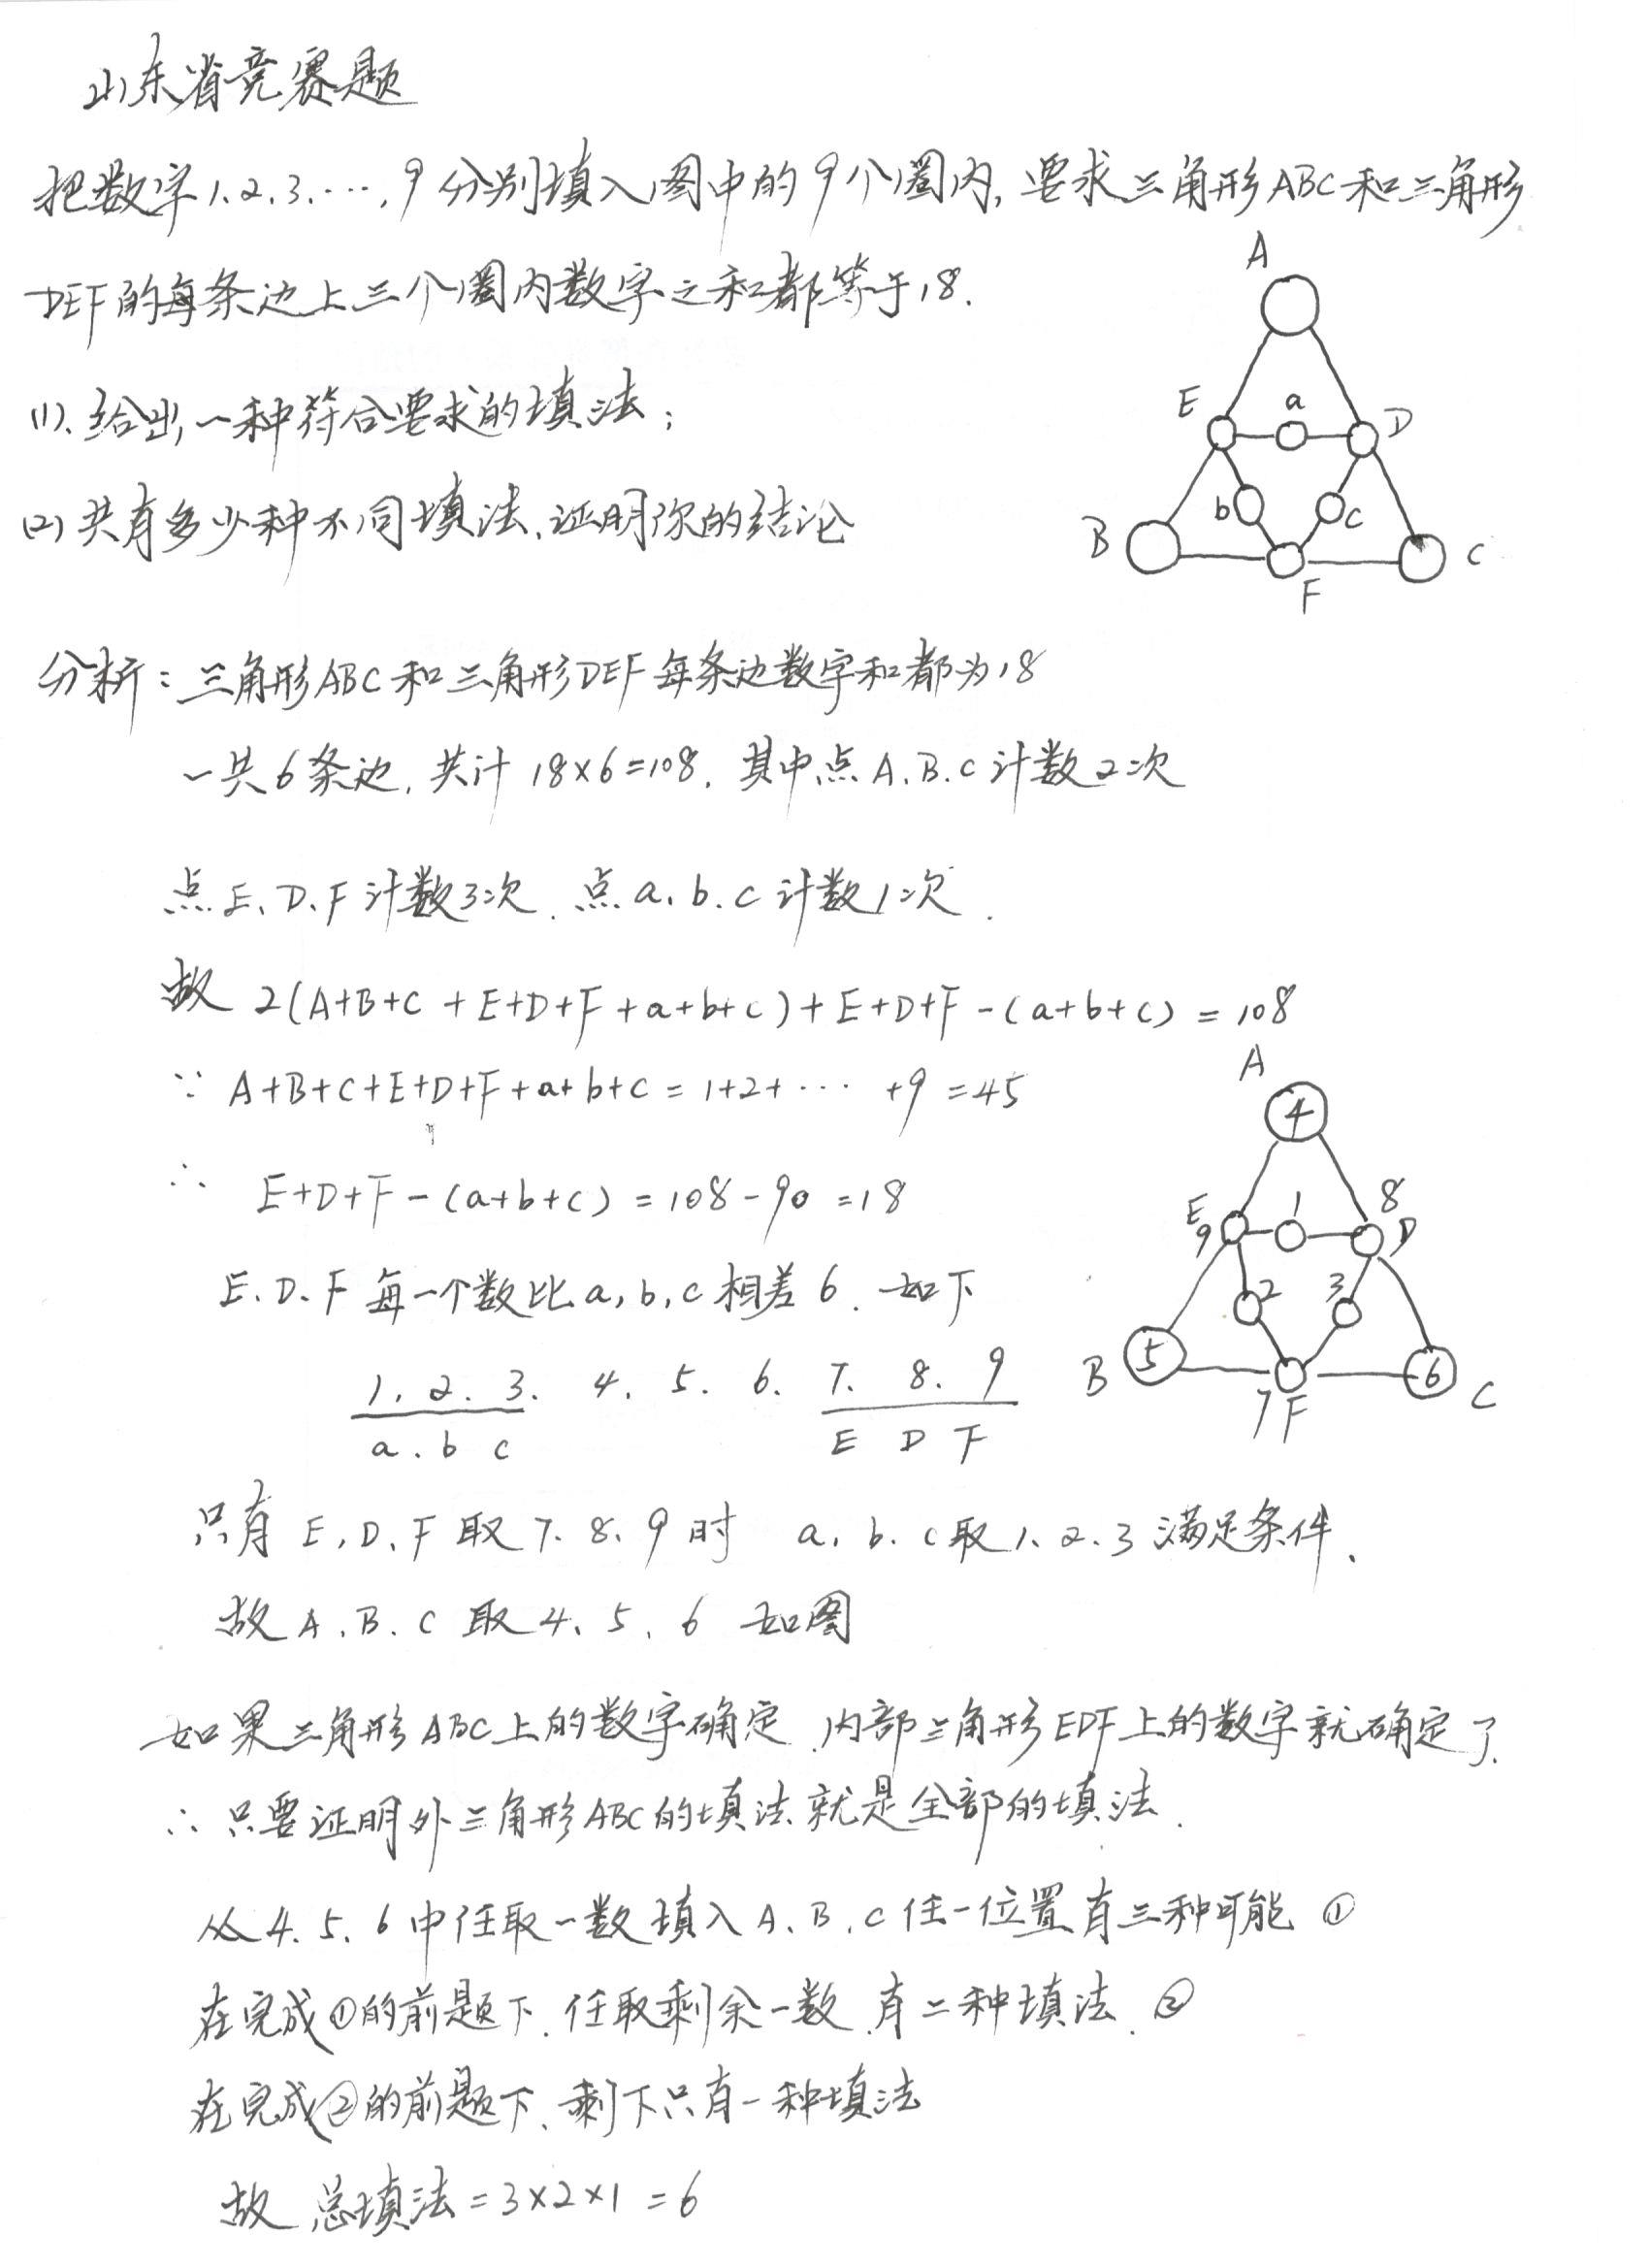 山东省竞赛题
把数字1.2.3.…,9分别填入图中的9个圈内,要求三角形ABC和三角形
DEF的每条边上三个圈内数字之和都等于18.
A
E
a
D
b
c
B
F
C
(1).给出一种符合要求的填法;
(2)共有多少种不同填法.证明你的结论
分析:三角形ABC和三角形DEF每条边数字和都为18
一共6条边,共计18×6=108.其中点A.B.C计数2次
点E、D、F计数3次.点a.b.c计数1次.
故 2(A+B+C+E+D+F+a+b+c)+E+D+F-(a+b+c)=108
∵ A+B+C+E+D+F+a+b+c=1+2+… +9=45
∴ E+D+F-(a+b+c)=108-90=18
E、D、F每一个数比a,b,c相差6.如下
1.2.3. 4.5.6.7.8.9
a.b c E D F
A
4
E
9
1
8
D
2
3
B
5
7F
6
C
只有E,D、F取7、8、9时 a.b.c取1、2、3满足条件.
故A.B.C取4、5、6 如图
如果三角形ABC上的数字确定.内部三角形EDF上的数字就确定了.
∴只要证明外三角形ABC的填法就是全部的填法.
从4.5.6中任取一数填入A、B.C任一位置有三种可能 ①
在完成①的前题下.任取剩余一数.有二种填法.②
在完成②的前题下、剩下只有一种填法
故总填法=3×2×1=6